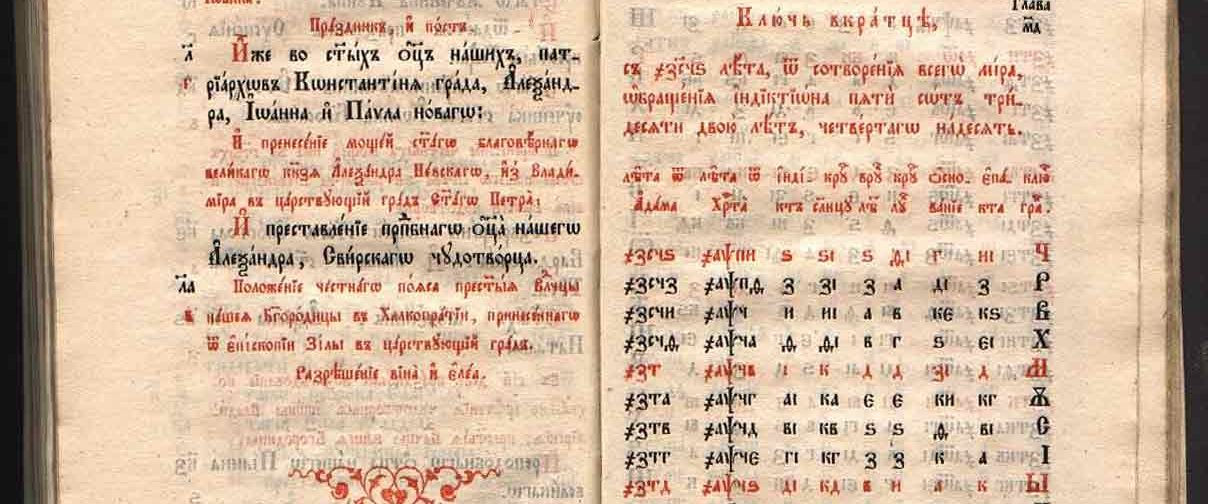 Пра́здникъ, и҆ по́стъ.
л҃ И҆́же во ст҃ы́хъ ѻ҆ц҃ъ на́шихъ, пат-
рїа́рхѡвъ Кѡнстанті́нѧ гра́да, А҆леѯа́нд-
ра, І҆ѡа́нна и҆ Па́ѵла но́вагѡ:
И҆ пренесе́нїе моще́й ст҃а́гѡ благовѣ́рнагѡ
вели́кагѡ кнѧ́зѧ А҆леѯа́ндра Не́вскагѡ, и҆з̾ Влади́-
мїра въ ца́рствꙋющїй гра́дъ Ст҃а́гѡ Петра̀:
И҆ преставле́нїе прпⷣбнагѡ ѻ҆ц҃а̀ на́шегѡ
А҆леѯа́ндра, Сви́рскагѡ чꙋдотво́рца.
л҃а Положе́нїе че́стна́гѡ по́ѧса прест҃ы́ѧ влⷣчцы
на́шеѧ бг҃оро́дицы въ Халкопра́тїи, принесе́ннагѡ
ѿ є҆пїско́пїи Зі́лы въ ца́рствꙋющїй гра́дъ.
Разрѣше́нїе вїна̀ и҆ є҆ле́а.
Глава
Клю́чь вкра́тцѣ,
съ ҂зсчѕ лѣ́та, ѿ сотворе́нїѧ всегѡ̀ мі́ра,
ѡ҆браще́нїѧ і҆ндїктїѡ́на пѧти́ сѡ́тъ три́-
десѧти двою̀ лѣ́тъ, четве́ртагѡ на́десѧть.
лѣ́та ѿ лѣ́та ѿ і҆ндї крꙋⷢ врꙋⷢ крꙋⷢ ѻ҆сно є҆па клю
А҆да́ма Хрⷭта̀ ктъ сл҃нцꙋ лѣ лꙋ ва́нїе кта гра.
҂зсчѕ ҂аѱпи ѕ ѕі ѕ ді г иі Ч
҂зсчз ҂аѱпд з зі з а ді з Р
҂зсчи ҂аѱч и иі а в кє кѕ В
҂зсчд ҂аѱча д ді в г ѕ єі Х
҂зт ҂аѱчв і к д д зі д М
҂зта ҂аѱчг аі ка є є ки кг Ѫ
҂зтв ҂аѱчд ві кв ѕ ѕ д ві Є
҂зтг ҂аѱчє гі кг з з к а І
҂зтд ҂аѱчѕ ді кд в и а к Ы